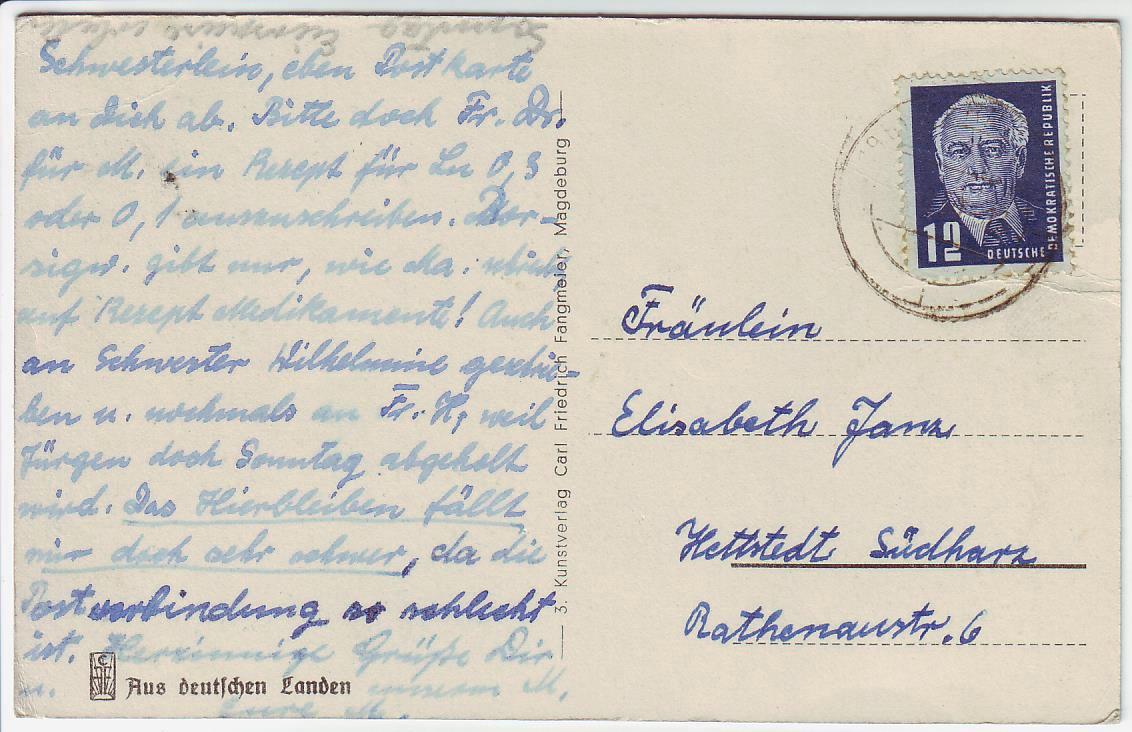 Schwesterlein, eben Postkarte
an Dich ab. Bitte doch Fr. Dr.
für M. ein Rezept für Lu 0,3
oder 0,1 auszuschreiben. Bor-
sigw. gibt nur, wie Ma.
auf Rezept Medikamente! Auch
an Schwester Wilhelmine geschrie-
ben u. nochmals an Fr. H, weil
Jürgen doch Sonntag abgeholt
wird. Das Hierbleiben fällt
mir doch sehr schwer, da die
Postverbindung so schlecht
ist. Herzinnige Grüße Dir
u. unserm M.
Eure M.
Aus deutschen Landen
3. Kunstverlag Carl Friedrich Fangmeier, Magdeburg
12
DEUTSCHE DEMOKRATISCHE REPUBLIK
Fräulein
Elisabeth Janz
Hettstedt Südharz
Rathenaustr. 6